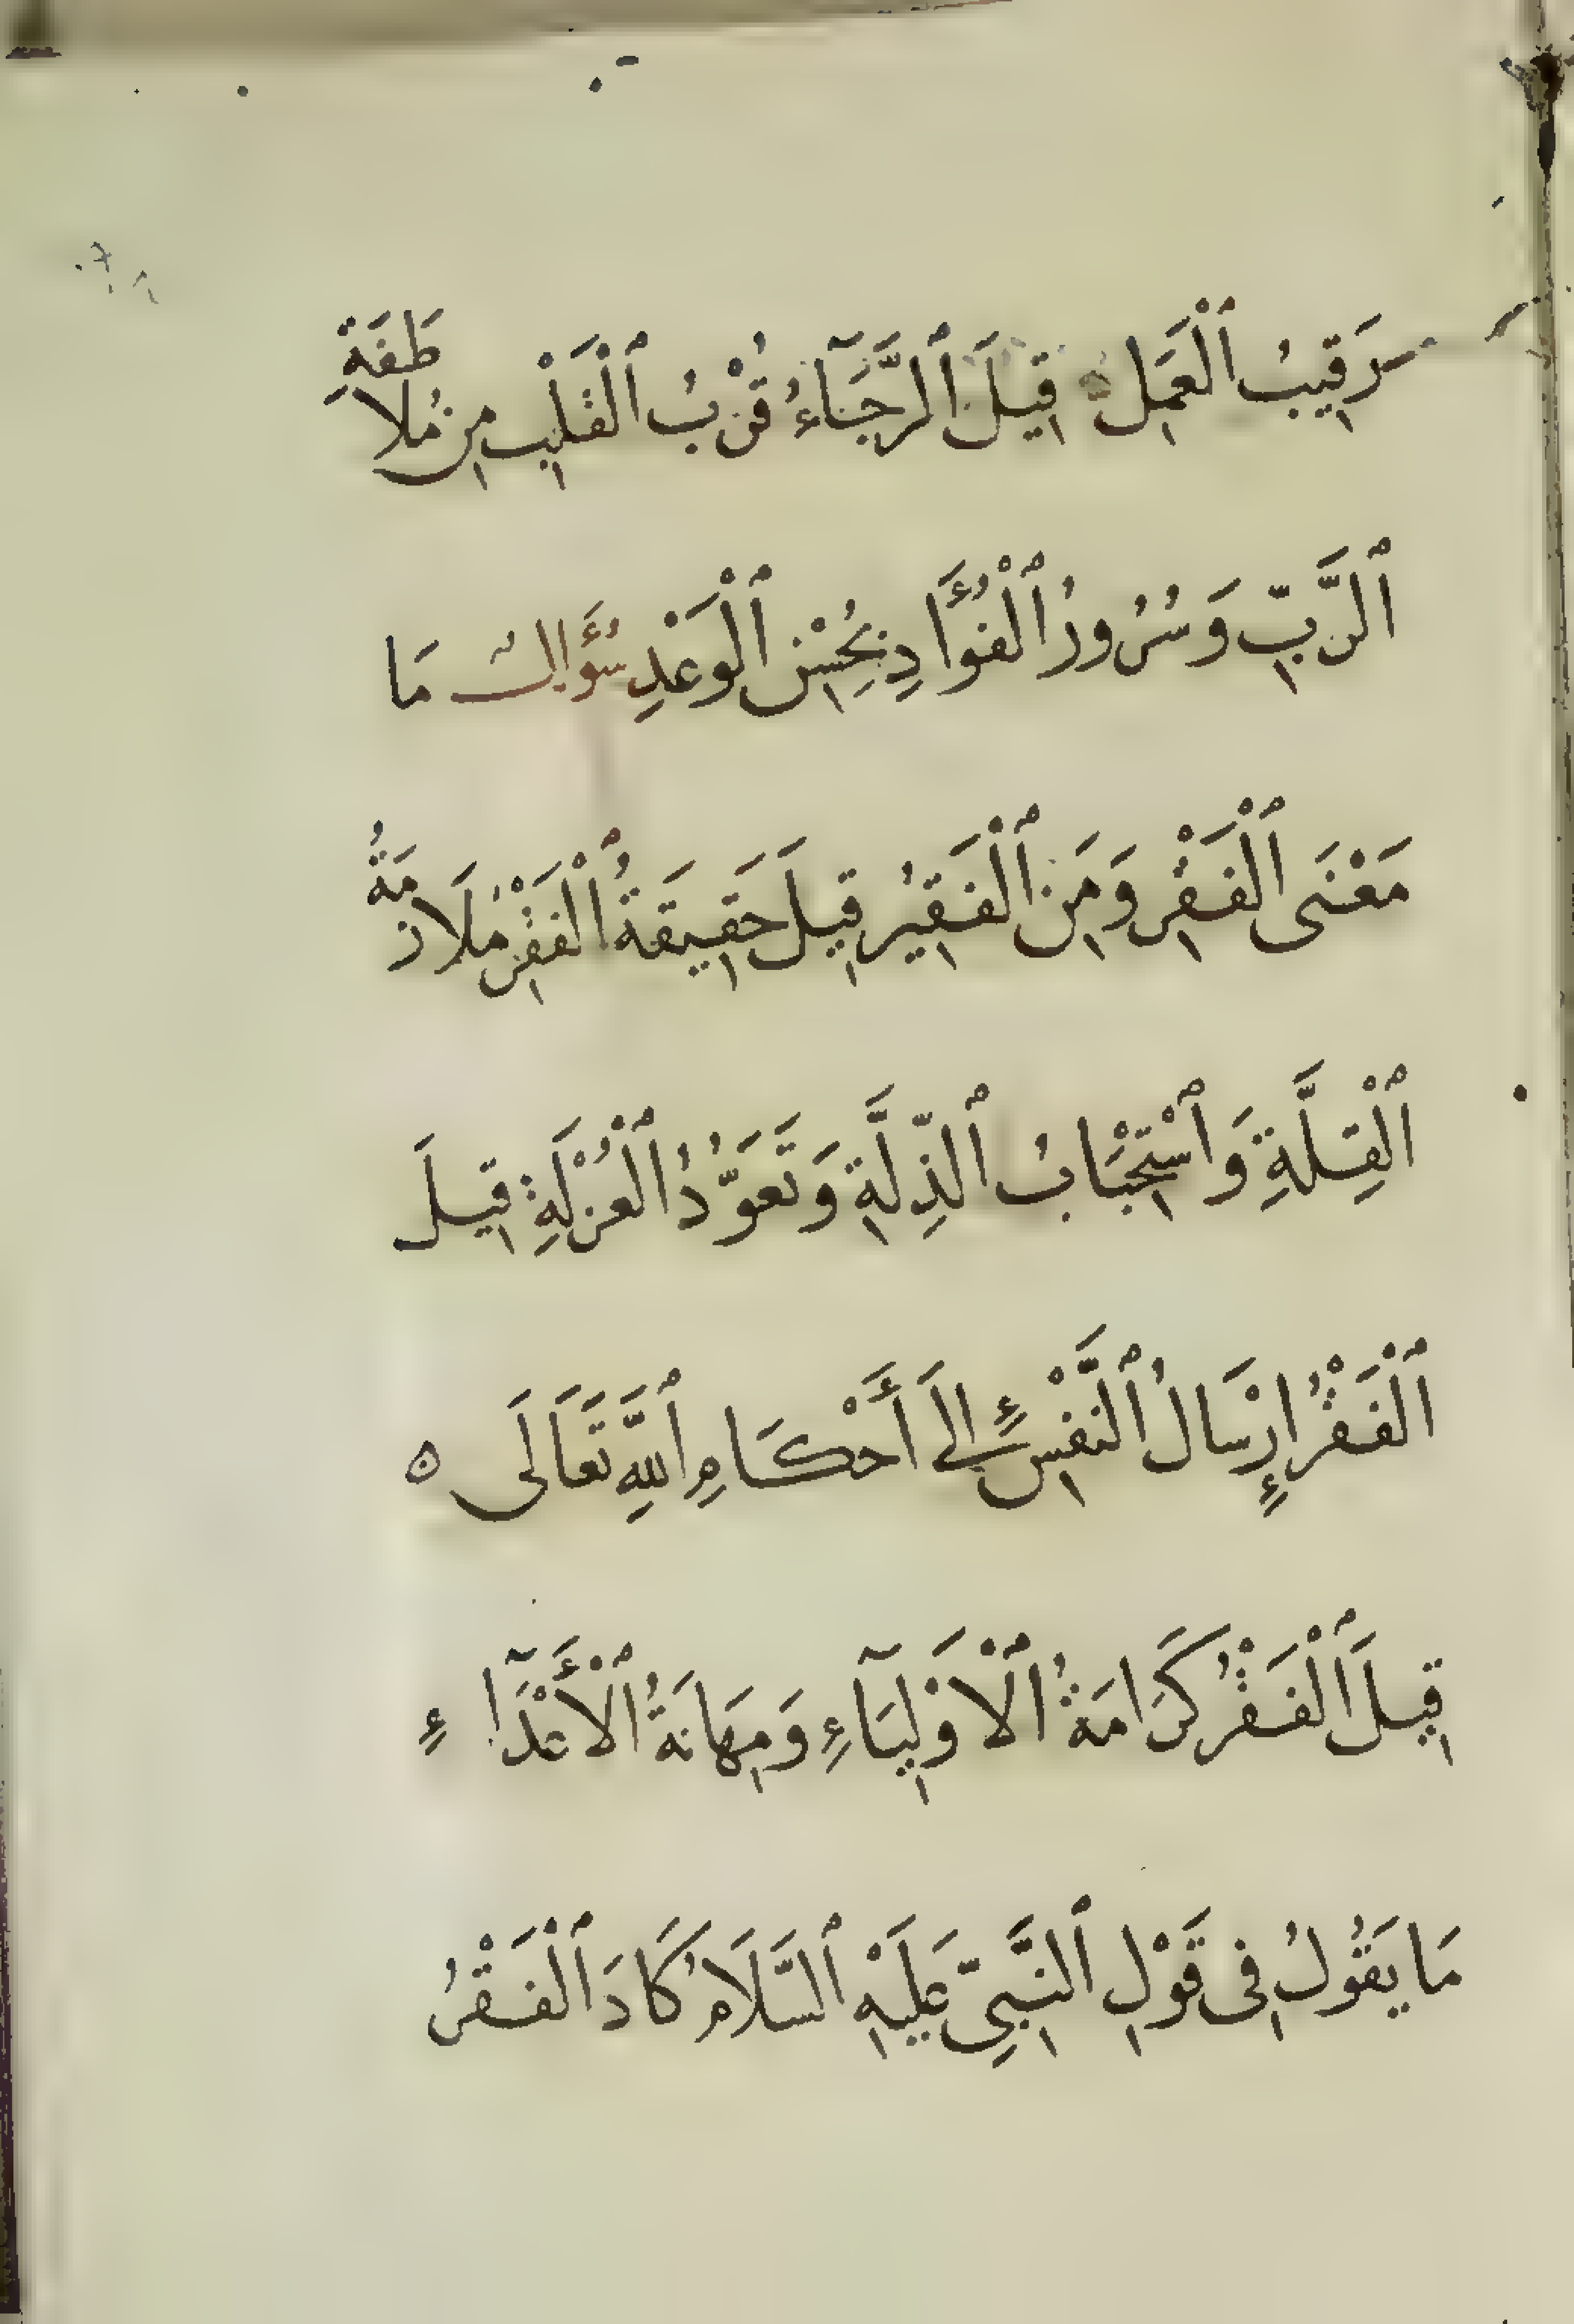 رَقِيبُ ٱلْعَمَلِ قِيلَ ٱلرَّجَآءُ قُرْبُ ٱلْقَلْبِ مِن مُلاطَفَةِ
ٱلرَّبِّ وَسُرُورُ ٱلْفُؤَادِ بِحُسْنِ ٱلْوَعْدِ سُؤَالٌ مَا
مَعْنَى ٱلْفَقْرِ وَمَنِ ٱلْفَقِيرُ قِيلَ حَقِيقَةُ ٱلْفَقْرِ مُلَازَمَةُ
ٱلْقِلَّةِ وَٱسْتِحْبَابُ ٱلذِّلَّةِ وَتَعَوُّدُ ٱلْعُزْلَةِ قِيلَ
ٱلْفَقْرُ إِرْسَالُ ٱلنَّفْسِ إِلَى أَحْكَامِ ٱللَّهِ تَعَالَى ه
قِيلَ ٱلْفَقْرُ كَرَامَةُ ٱلْاَوْلِيَآءِ وَمِهَانَةُ ٱلْأَعْدَآءِ
مَا يَقُولُ فِى قَوْلِ ٱلنَّبِىِّ عَلَيْهِ ٱلسَّلَامُ كَادَ ٱلْفَقْرُ